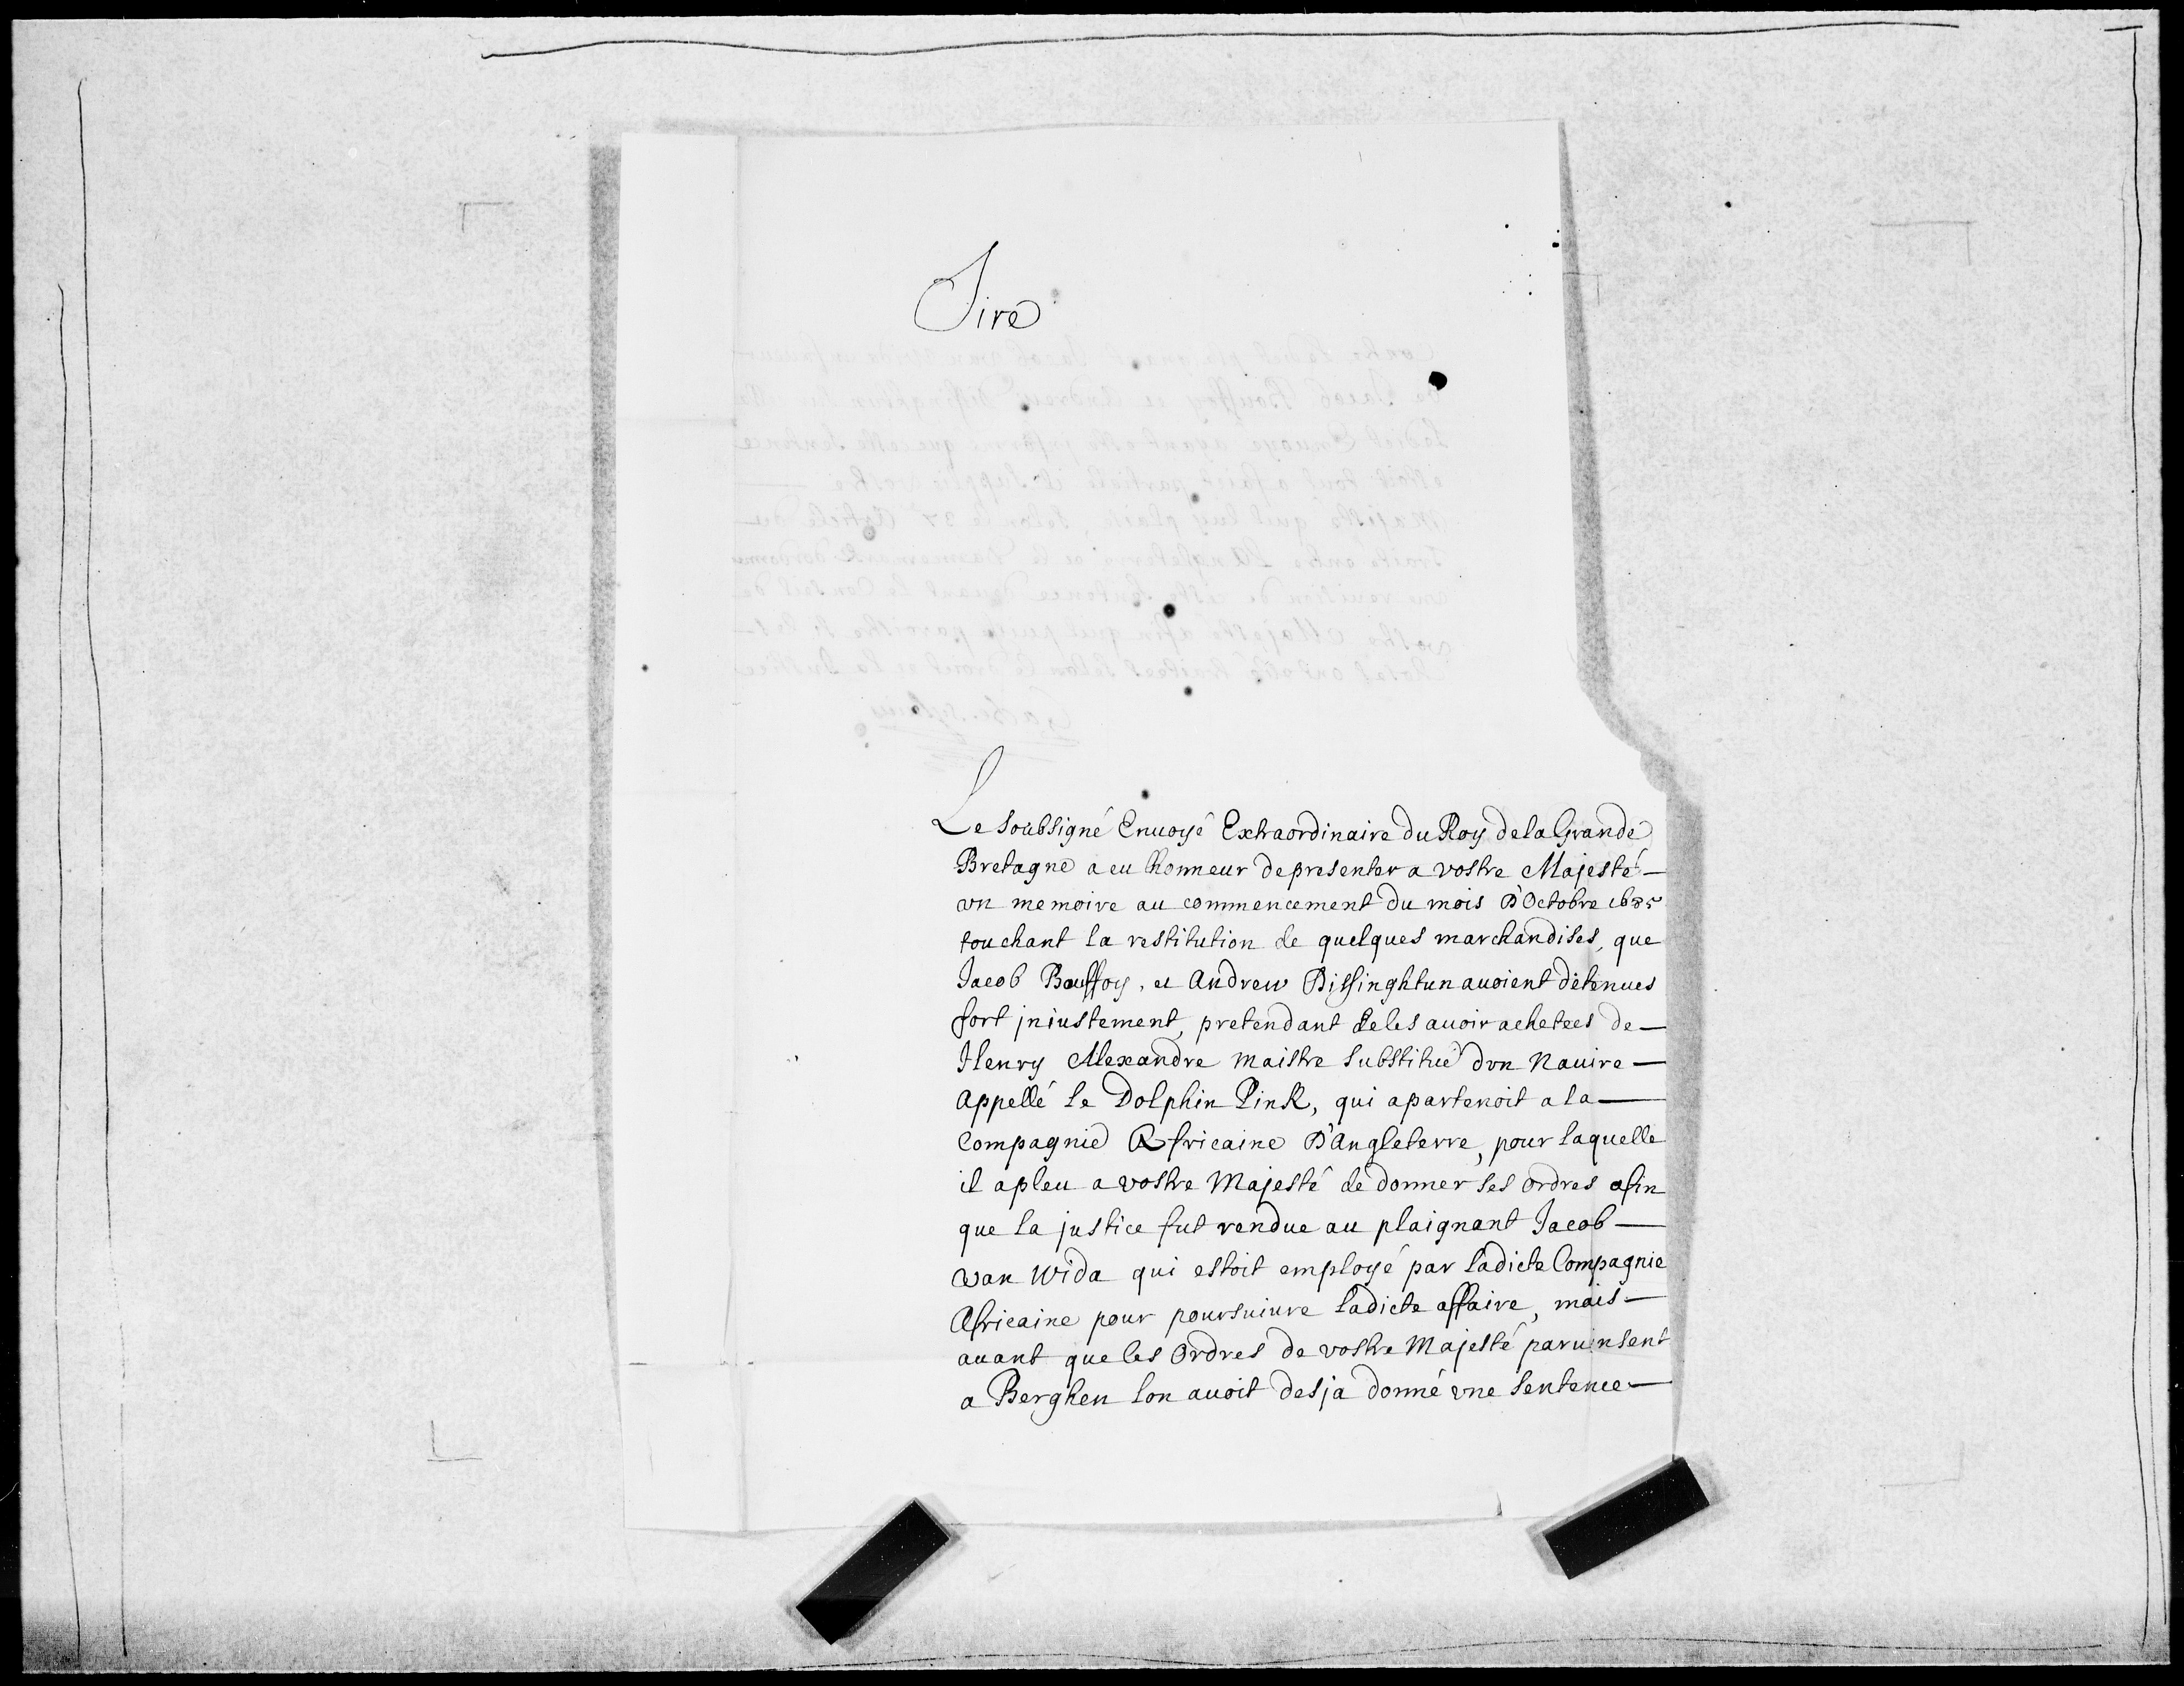 Sire
Le soubsigné Enuoyé Extraordinaire du Roy de la Grande
Bretagne a eu lhonneur de presenter a vostre Majesté
vn memoire au commencement du mois D'Octobre 1685
touchant la restitution de quelques marchandises, que
Jacob Bouffoy, et Andrew Dissinghtun auoient détenues
fort jniustement, pretendant de les auoir achetees de
Henry Alexandre maistre substitué dvn Nauire
appellé le Dolphin Pink, qui apartenoit a la
Compagnie Africaine D'Angleterre, pour laquelle
il a pleu a vostre Majesté de donner ses ordres afin
que la justice fut rendue au plaignant Jacob
van Wida qui estoit employé par ladicte Compagnie
Africaine pour poursuiure ladicte affaire, mais
auant que les Ordres de vostre Majesté paruinsent
a Berghen lon auoit desja donné vne sentence